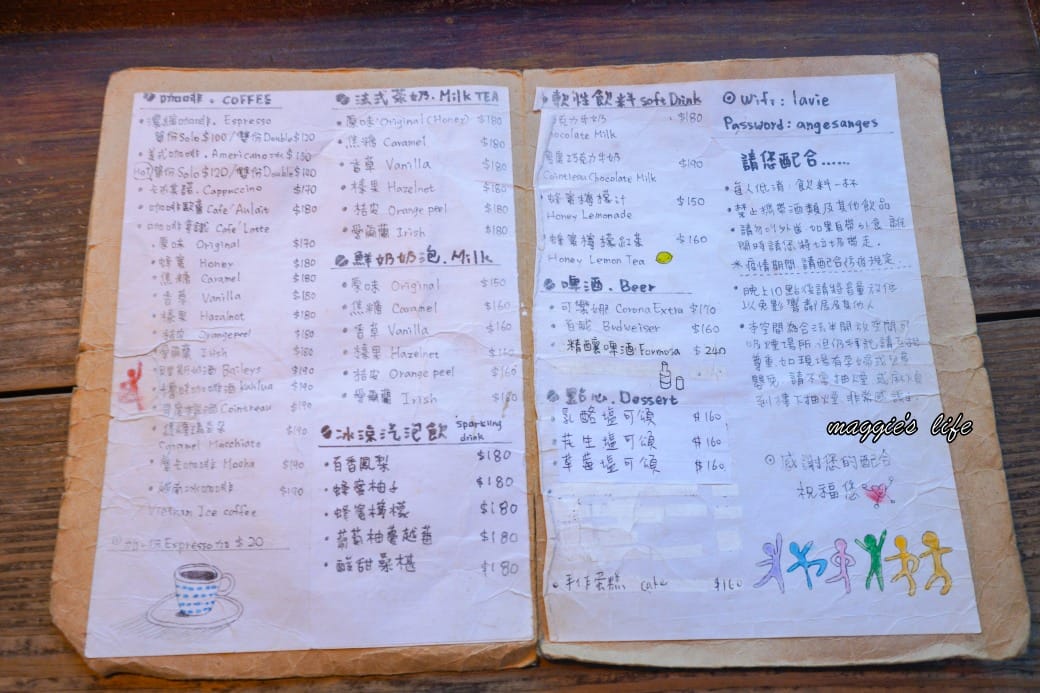 咖啡. COFFEE
濃縮咖啡. Espresso
單份Solo $100/雙份Double $120
美式咖啡. Americano $150
HOT/單份Solo $120/雙份Double
卡布奇諾. Cappuccino $170
咖啡歐蕾 Cafe' Aulait $180
咖啡拿鐵 Cafe' Latte
原味 Original $170
蜂蜜 Honey $180
焦糖 Caramel $180
香草 Vanilla $180
榛果 Hazalnut $180
桔皮 Orange peel $180
愛爾蘭 Irish $180
Baileys $190
Kahlua $190
Cointreau $190
$190
Caramel Macchiato
摩卡咖啡 Mocha $190
越南冰咖啡 $190
Vietnam Ice coffee
Espresso 加 $20
法式茶奶. Milk TEA
原味 Original (Honey) $180
焦糖 Caramel $180
香草 Vanilla $180
榛果 Hazelnet $180
桔皮 Orange peel $180
愛爾蘭 Irish $180
鮮奶奶泡. Milk
原味 Original $150
焦糖 Caramel $160
香草 Vanilla $160
榛果 Hazelnet
桔皮 Orange peel $160
愛爾蘭 Irish
冰涼汽泡飲 sparkling drink
百香鳳梨 $180
蜂蜜柚子 $180
蜂蜜檸檬 $180
葡萄柚蔓越莓 $180
酸甜桑椹 $180
軟性飲料 soft Drink
巧克力牛奶 $180
Chocolate Milk
巧克力牛奶 $190
Cointreau Chocolate Milk
蜂蜜檸檬汁 $150
Honey Lemonade
蜂蜜檸檬紅茶 $160
Honey Lemon Tea
啤酒. Beer
可樂娜 Corona Extra $170
百威 Budweiser $160
精釀啤酒 Formosa $240
點心. Dessert
乳酪塩可頌 $160
花生塩可頌 $160
草莓塩可頌 $160
手作蛋糕 cake $160
Wifi: lavie
Password: angesanges
請您配合......
每人低消: 飲料一杯
禁止攜帶酒類及其他飲品
請勿以外食, 如果自帶外食, 離
開時請您將垃圾帶走.
※疫情期間, 請配合防疫規定.
晚上10點後請將音量放低
以免影響鄰居及其他人
本空間為合法半開放空間可
感謝您的配合
祝福您
maggie's life